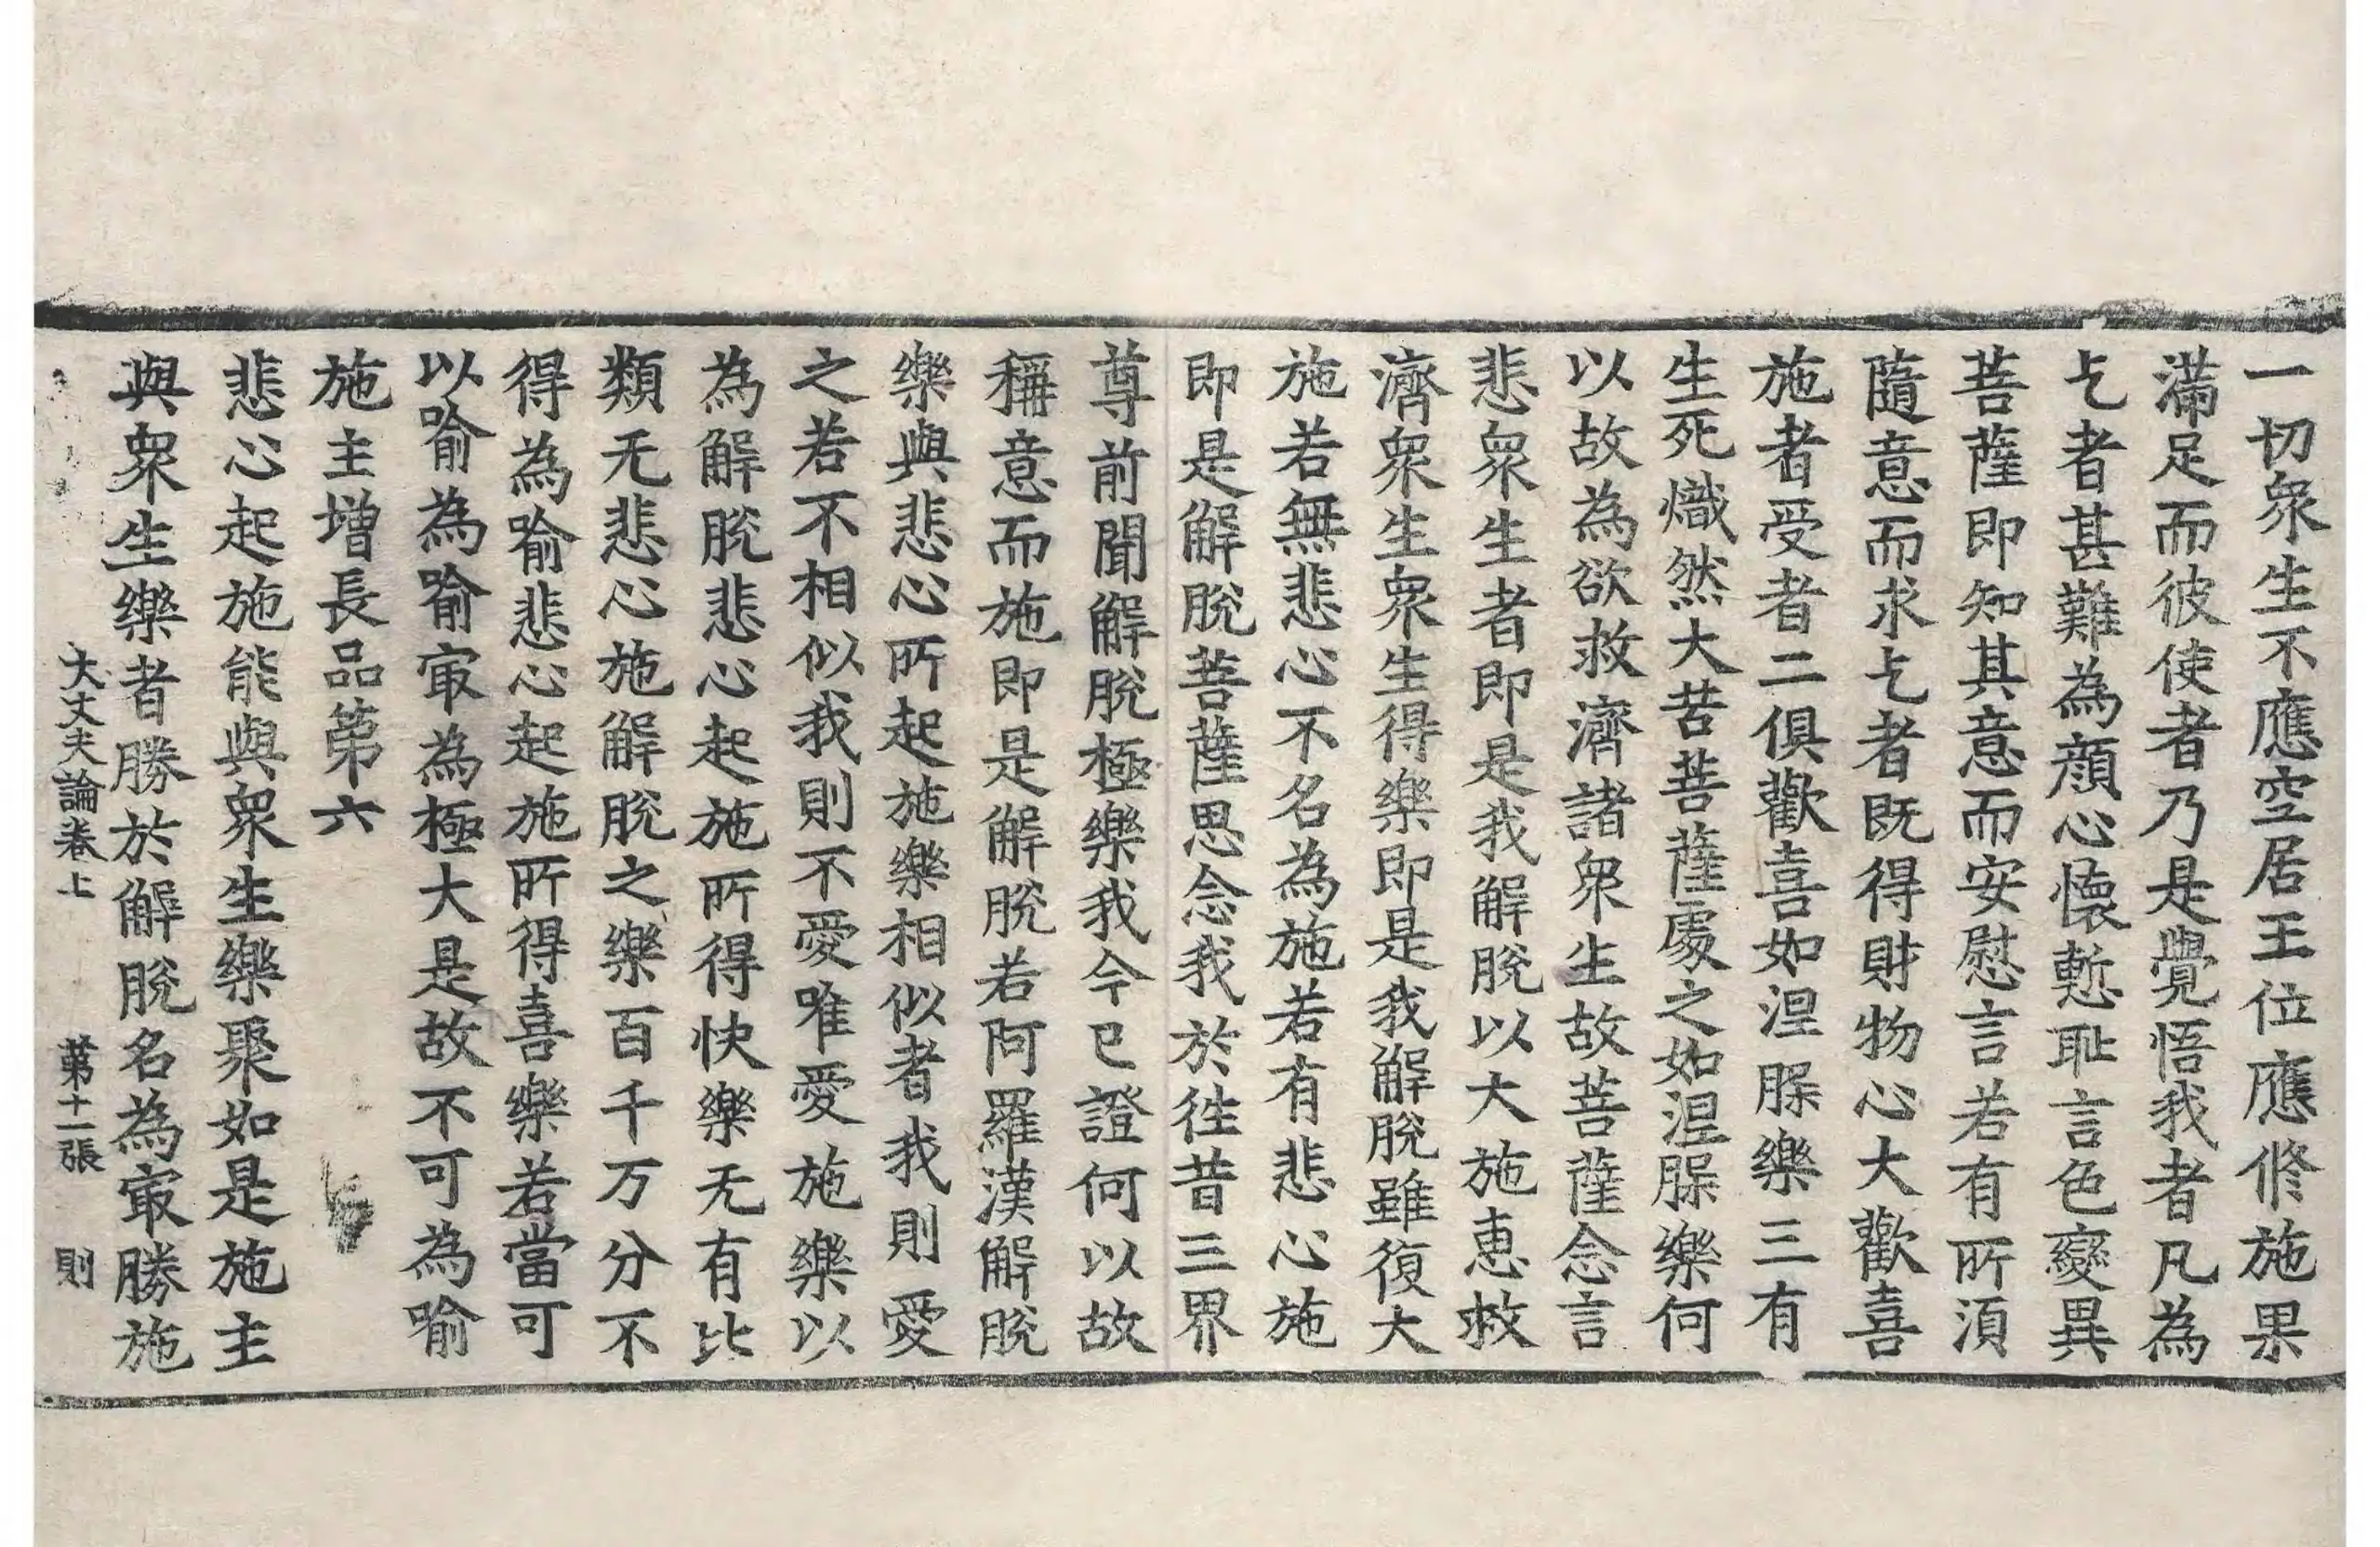 一切衆生不應空居王位應脩施果
滿足而彼使者乃是覺悟我者凡為
乞者甚難為顔心懷慙恥言色變異
菩薩即知其意而安慰言若有所須
隨意而求乞者既得財物心大歡喜
施者受者二俱歡喜如涅脲樂三有
生死熾然大苦菩薩處之如涅脲樂何
以故為欲救濟諸衆生故菩薩念言
悲衆生者即是我解脫以大施惠救
濟衆生衆生得樂即是我解脫雖復大
施若無悲心不名為施若有悲心施
即是解脫菩薩思念我於徃昔三界
尊前聞解脫極樂我今已證何以故
稱意而施即是解脫若阿羅漢解脫
樂與悲心所起施樂相似者我則愛
之若不相似我則不愛唯愛施樂以
為解脫悲心起施所得快樂无有比
類无悲心施解脫之樂百千万分不
得為喻悲心起施所得喜樂若當可
以喻為喻㝡為極大是故不可為喻
施主增長品第六
悲心起施能與衆生樂聚如是施主
與衆生樂者勝於解脫名為㝡勝施
大丈夫論卷上 第十一張 則